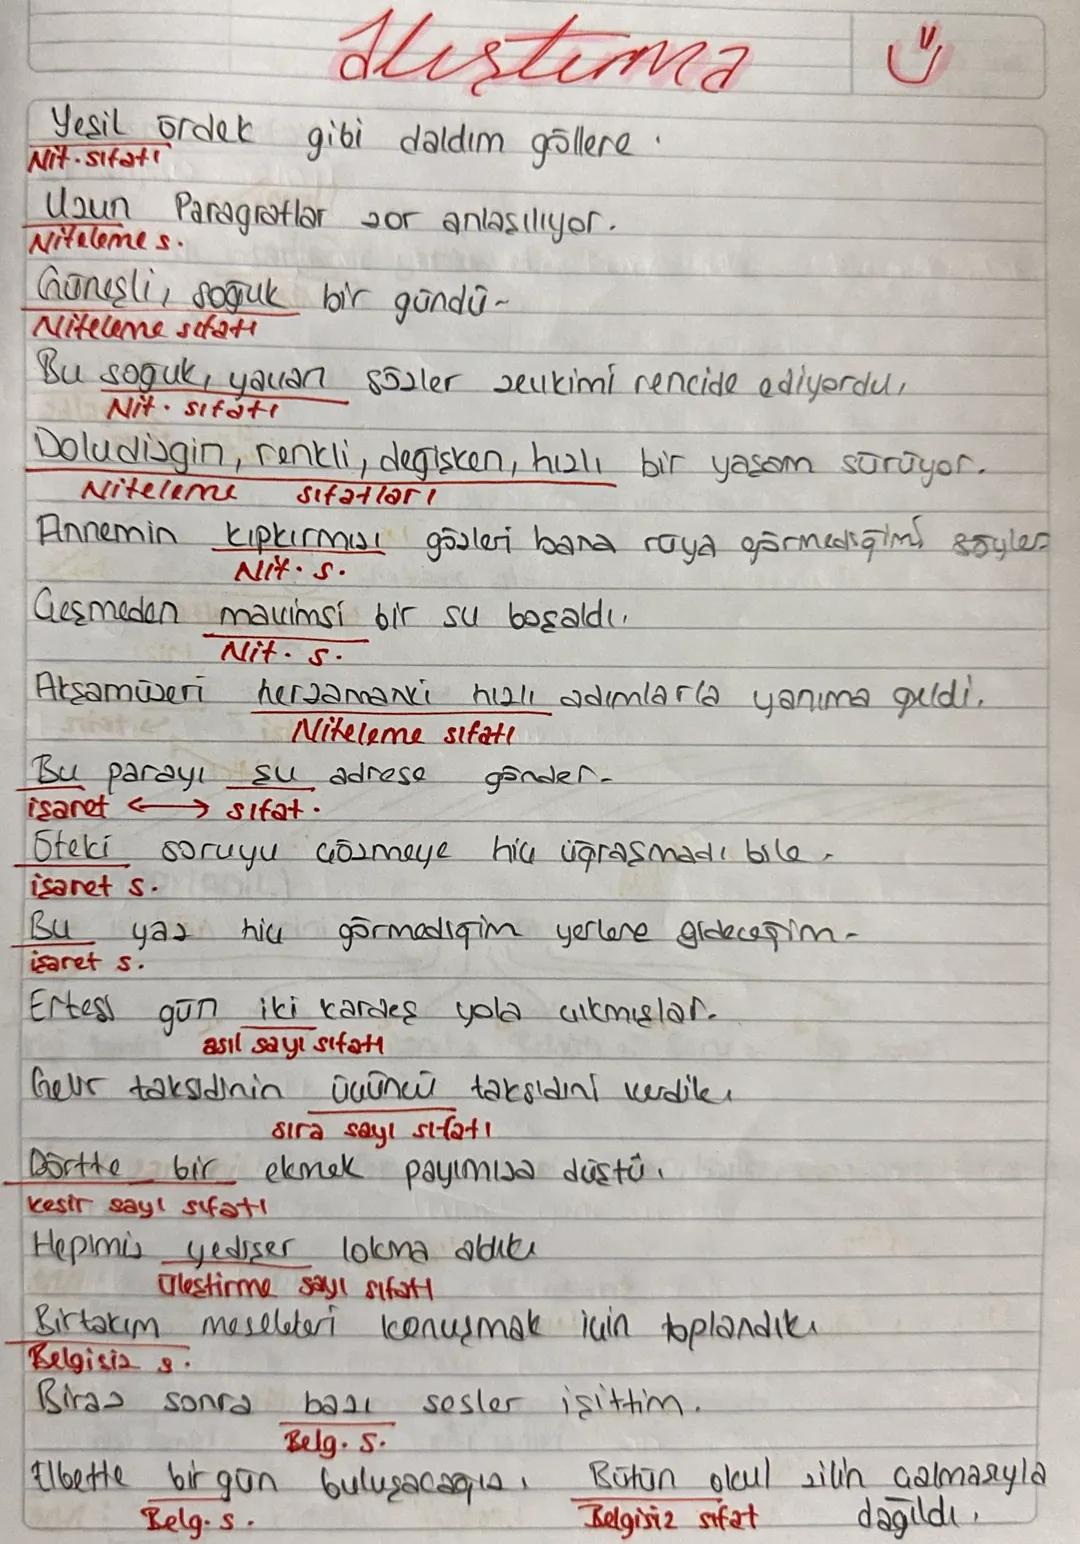 Alıştırma
Yeşil ördek gibi daldım göllere.
Nit. sıfatı
Uzun Paragraflar zor anlaşılıyor.
Niteleme s.
Güneşli, soğuk bir gündü.
Niteleme sıfatı
Bu soğuk, yavan sözler zevkimi rencide ediyordu.
Nit. sıfatı
Doludizgin, renkli, değişken, hızlı bir yaşam sürüyor.
Niteleme sıfatları
Annemin kıpkırmızı gözleri bana rüya görmediğimi söyler
Nit. s.
Çeşmeden mavimsi bir su boşaldı.
Nit. s.
Akşamüzeri herzamanki hızlı adımlarla yanıma geldi.
Niteleme sıfatı
Bu parayı şu adrese gönder.
işaret ↔ sıfat.
Öteki soruyu çözmeye hiç uğraşmadı bile.
işaret s.
Bu yaz hiç görmediğim yerlere gideceğim.
işaret s.
Ertesi gün iki kardeş yola çıkmışlar.
asıl sayı sıfatı
taksidinin üçüncü taksidini verdik.
sıra sayı sıfatı
Dörtte bir ekmek payımıza düştü.
kesir sayı sıfatı
Hepimiz yedişer lokma aldık.
Üleştirme sayı sıfatı
Birtakım meseleleri konuşmak için toplandık.
Belgisiz s.
Biraz sonra bazı sesler işittim.
Belg. s.
Elbette bir gün buluşacağız. Bütün okul zilin çalmasıyla
Belg. s. Belgisiz sıfat dağıldı.